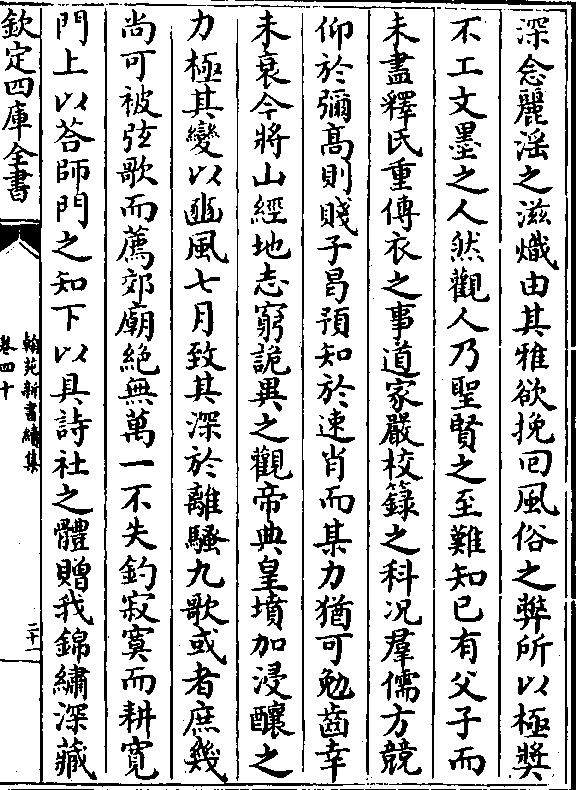 深念麗滛之滋熾由其雅欲挽囘風俗之弊所以極奬
不工文墨之人然觀人乃聖賢之至難知已有父子而
未盡釋氏重傳衣之事道家嚴校籙之科况羣儒方競
仰於彌髙則賤子曷預知於速肖而某力猶可勉齒幸
未衰今將山經地志窮詭異之觀帝典皇墳加浸釀之
力極其變以豳風七月致其深於離騷九歌或者庶幾
尚可被弦歌而薦郊廟絶無萬一不失釣寂寞而耕寛
門上以荅師門之知下以具詩社之體贈我錦繡深藏
欽定四庫全書
翰苑新書續集
卷四十
二十一